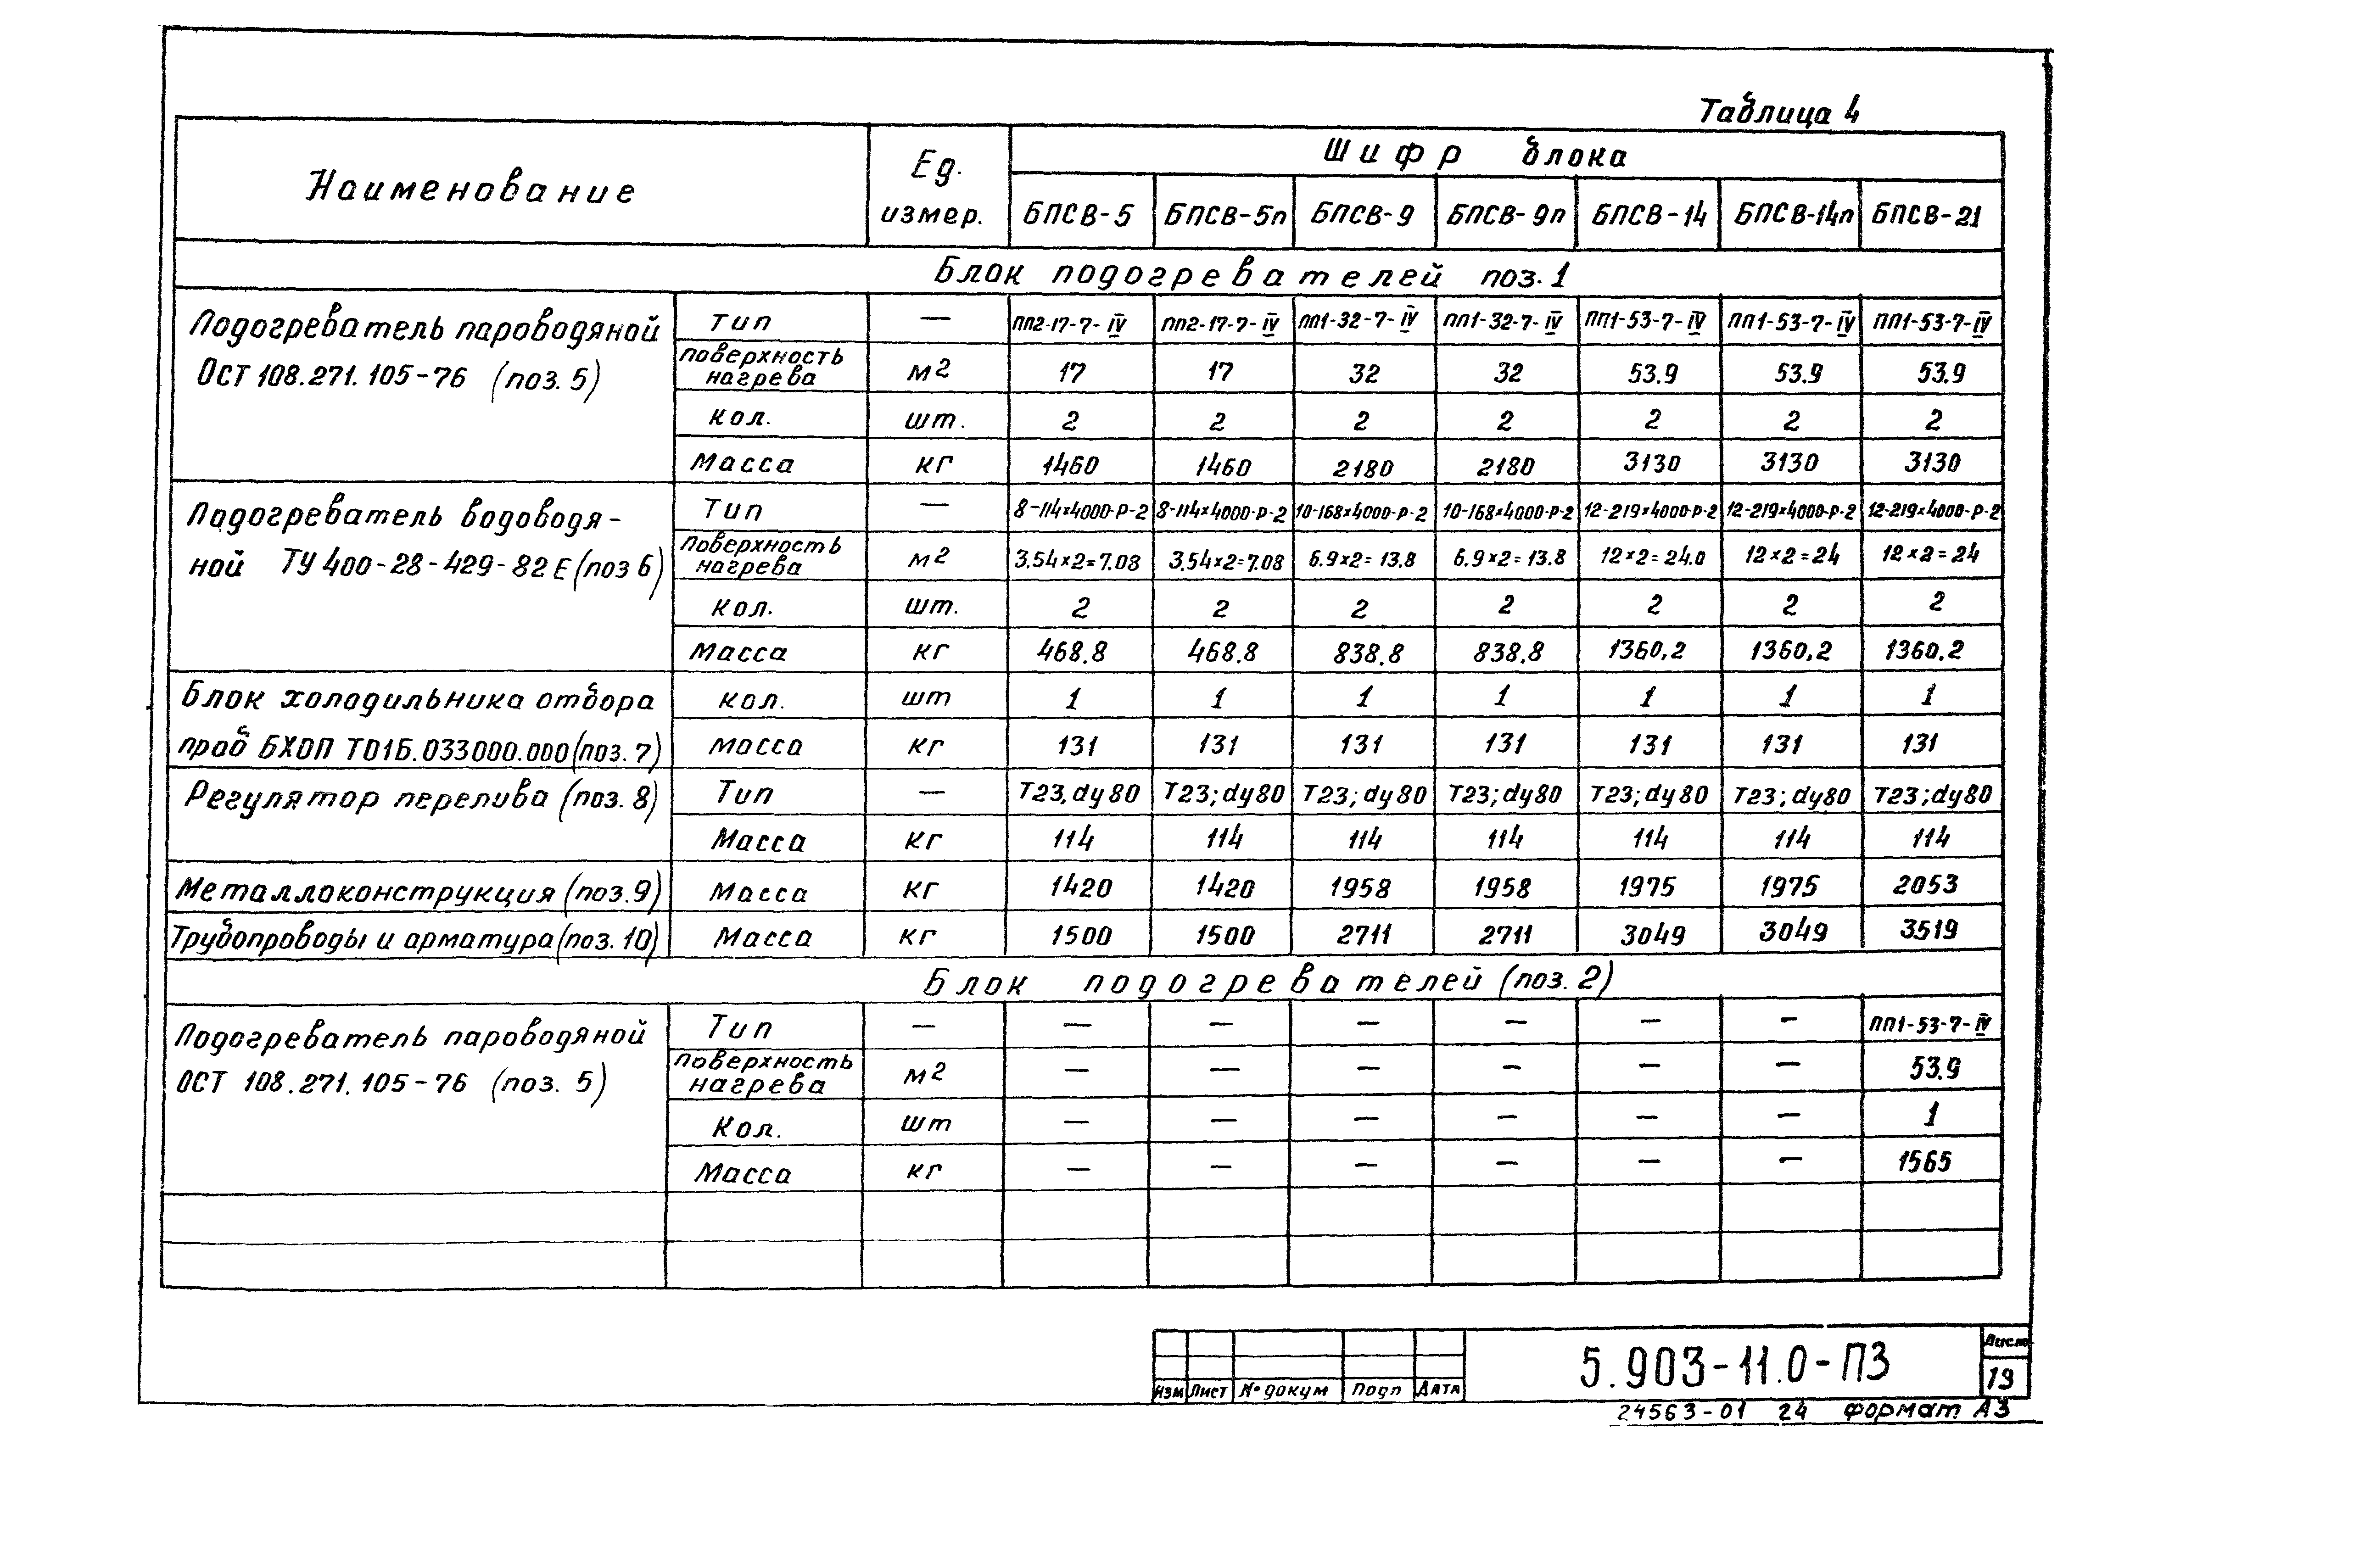 Таблица 4
Наименование Ед. измер. Шифр блока
БПСВ-5 БПСВ-5п БПСВ-9 БПСВ-9п БПСВ-14 БПСВ-14п БПСВ-21
Блок подогревателей поз. 1
Подогреватель пароводяной ОСТ 108.271.105-76 (поз. 5)
Тип — ПП2-17-7-IV ПП2-17-7-IV ПП1-32-7-IV ПП1-32-7-IV ПП1-53-7-IV ПП1-53-7-IV ПП1-53-7-IV
поверхность нагрева м2 17 17 32 32 53.9 53.9 53.9
кол. шт. 2 2 2 2 2 2 2
Масса кг 1460 1460 2180 2180 3130 3130 3130
Подогреватель водоводя-
ной ТУ 400-28-429-82Е (поз 6)
Тип — 8-114×4000-Р-2 8-114×4000-Р-2 10-168×4000-Р-2 10-168×4000-Р-2 12-219×4000-Р-2 12-219×4000-Р-2 12-219×4000-Р-2
поверхность нагрева м2 3.54×2=7.08 3.54×2=7.08 6.9×2=13.8 6.9×2=13.8 12×2=24.0 12×2=24 12×2=24
кол. шт. 2 2 2 2 2 2 2
Масса кг 468.8 468.8 838.8 838.8 1360,2 1360,2 1360.2
Блок холодильника отбора
проб БХОП Т01Б.033000.000 (поз. 7)
кол. шт 1 1 1 1 1 1 1
масса кг 131 131 131 131 131 131 131
Регулятор перелива (поз. 8)
Тип — Т23, dу80 Т23; dу80 Т23; dу80 Т23; dу80 Т23; dу80 Т23; dу80 Т23; dу80
Масса кг 114 114 114 114 114 114 114
Металлоконструкция (поз. 9) Масса кг 1420 1420 1958 1958 1975 1975 2053
Трубопроводы и арматура (поз. 10) Масса кг 1500 1500 2711 2711 3049 3049 3519
Блок подогревателей (поз. 2)
Подогреватель пароводяной
ОСТ 108.271.105-76 (поз. 5)
Тип — — — — — — — ПП1-53-7-IV
поверхность нагрева м2 — — — — — — 53.9
Кол. шт — — — — — — 1
Масса кг — — — — — — 1565
Изм Лист № докум Подп Дата
5.903-11.0-ПЗ
Лист
19
24563-01 24 формат А3